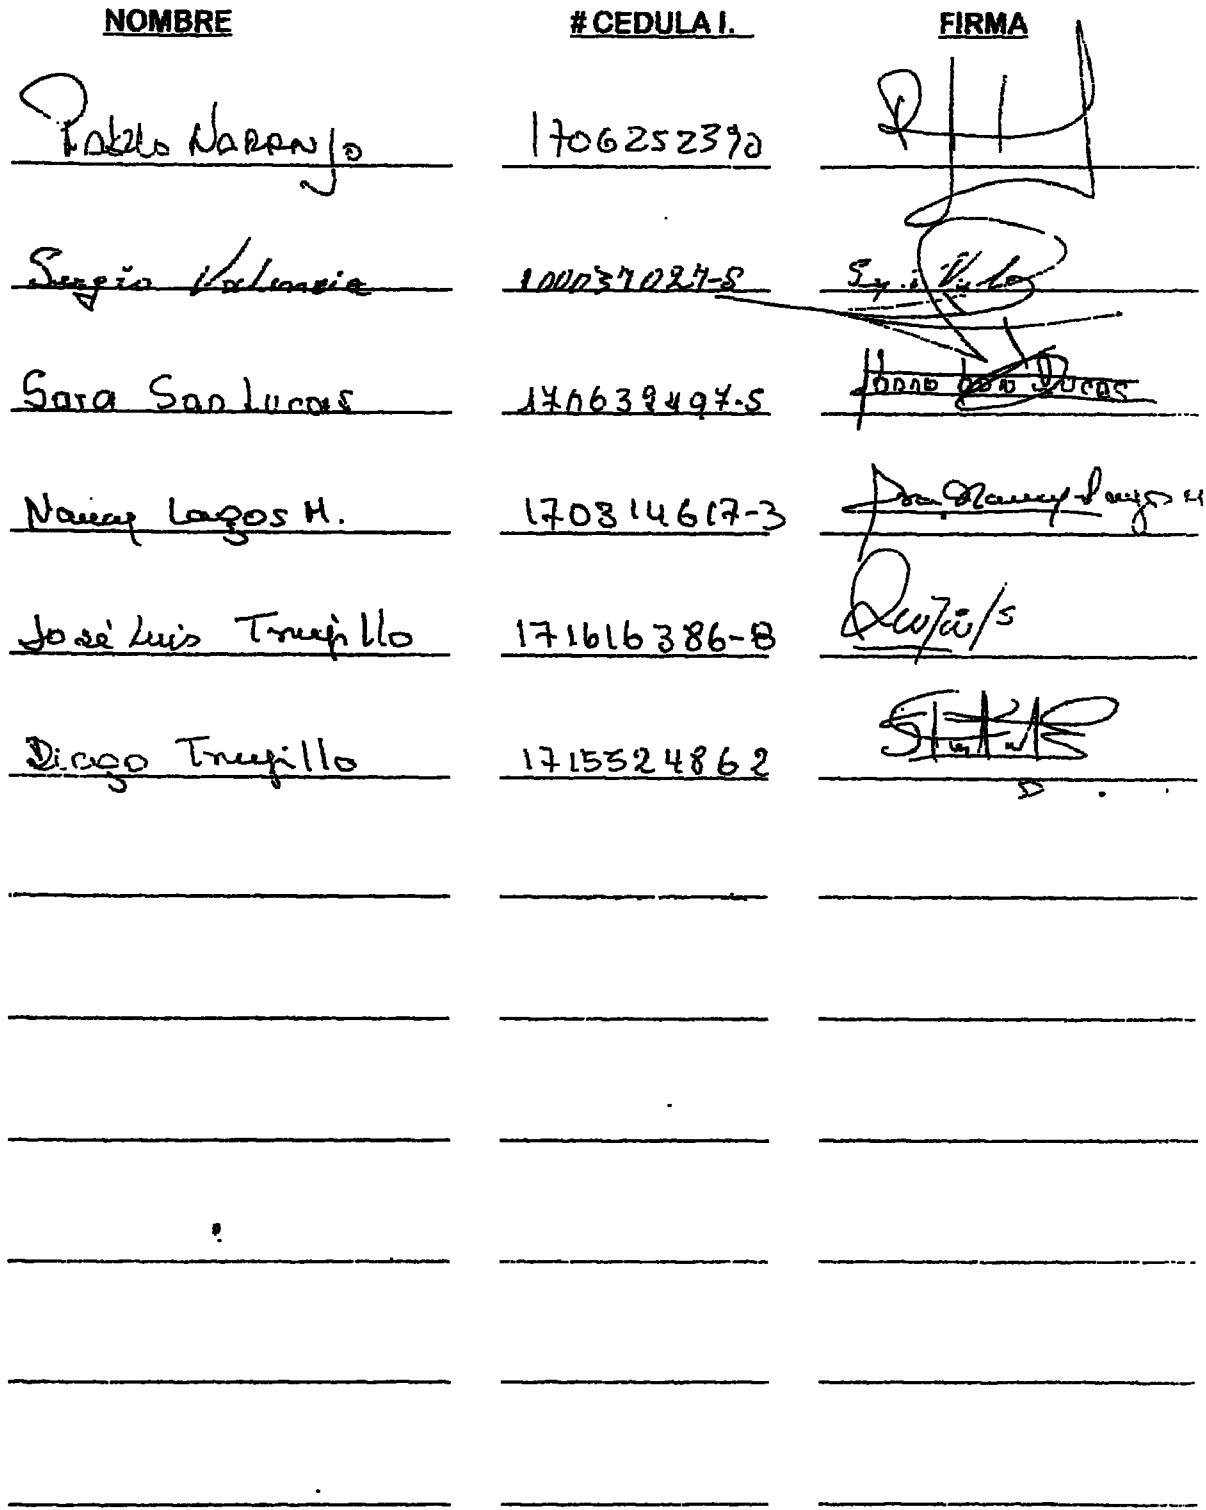 NOMBRE #CEDULA I. FIRMA
Pablo Naranjo 1706252390
Sergio Valencia 100037027-5
Sara San Lucas 170639497-5
Nancy Lagos M. 170814617-3 Dra. Nancy Lagos M
José Luis Trujillo 171616386-8
Diego Trujillo 1715524862